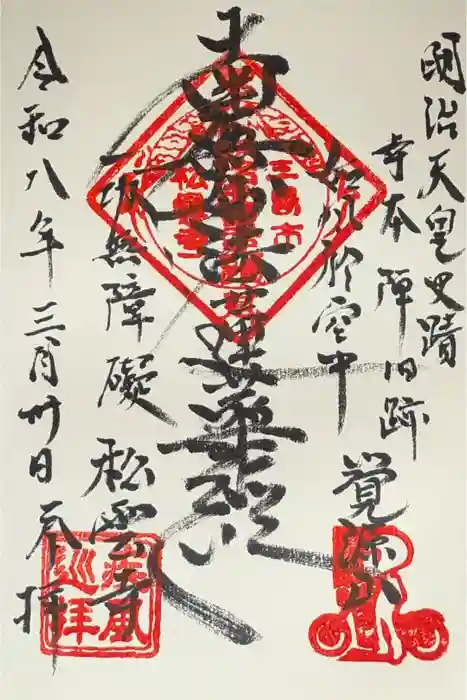 明治天皇史蹟
寺本陣旧跡
覚源山
如風於空中
南無妙法蓮華経
一切無障礙
松雲寺
令和八年三月卅日 奉拝
三島市
巡拝